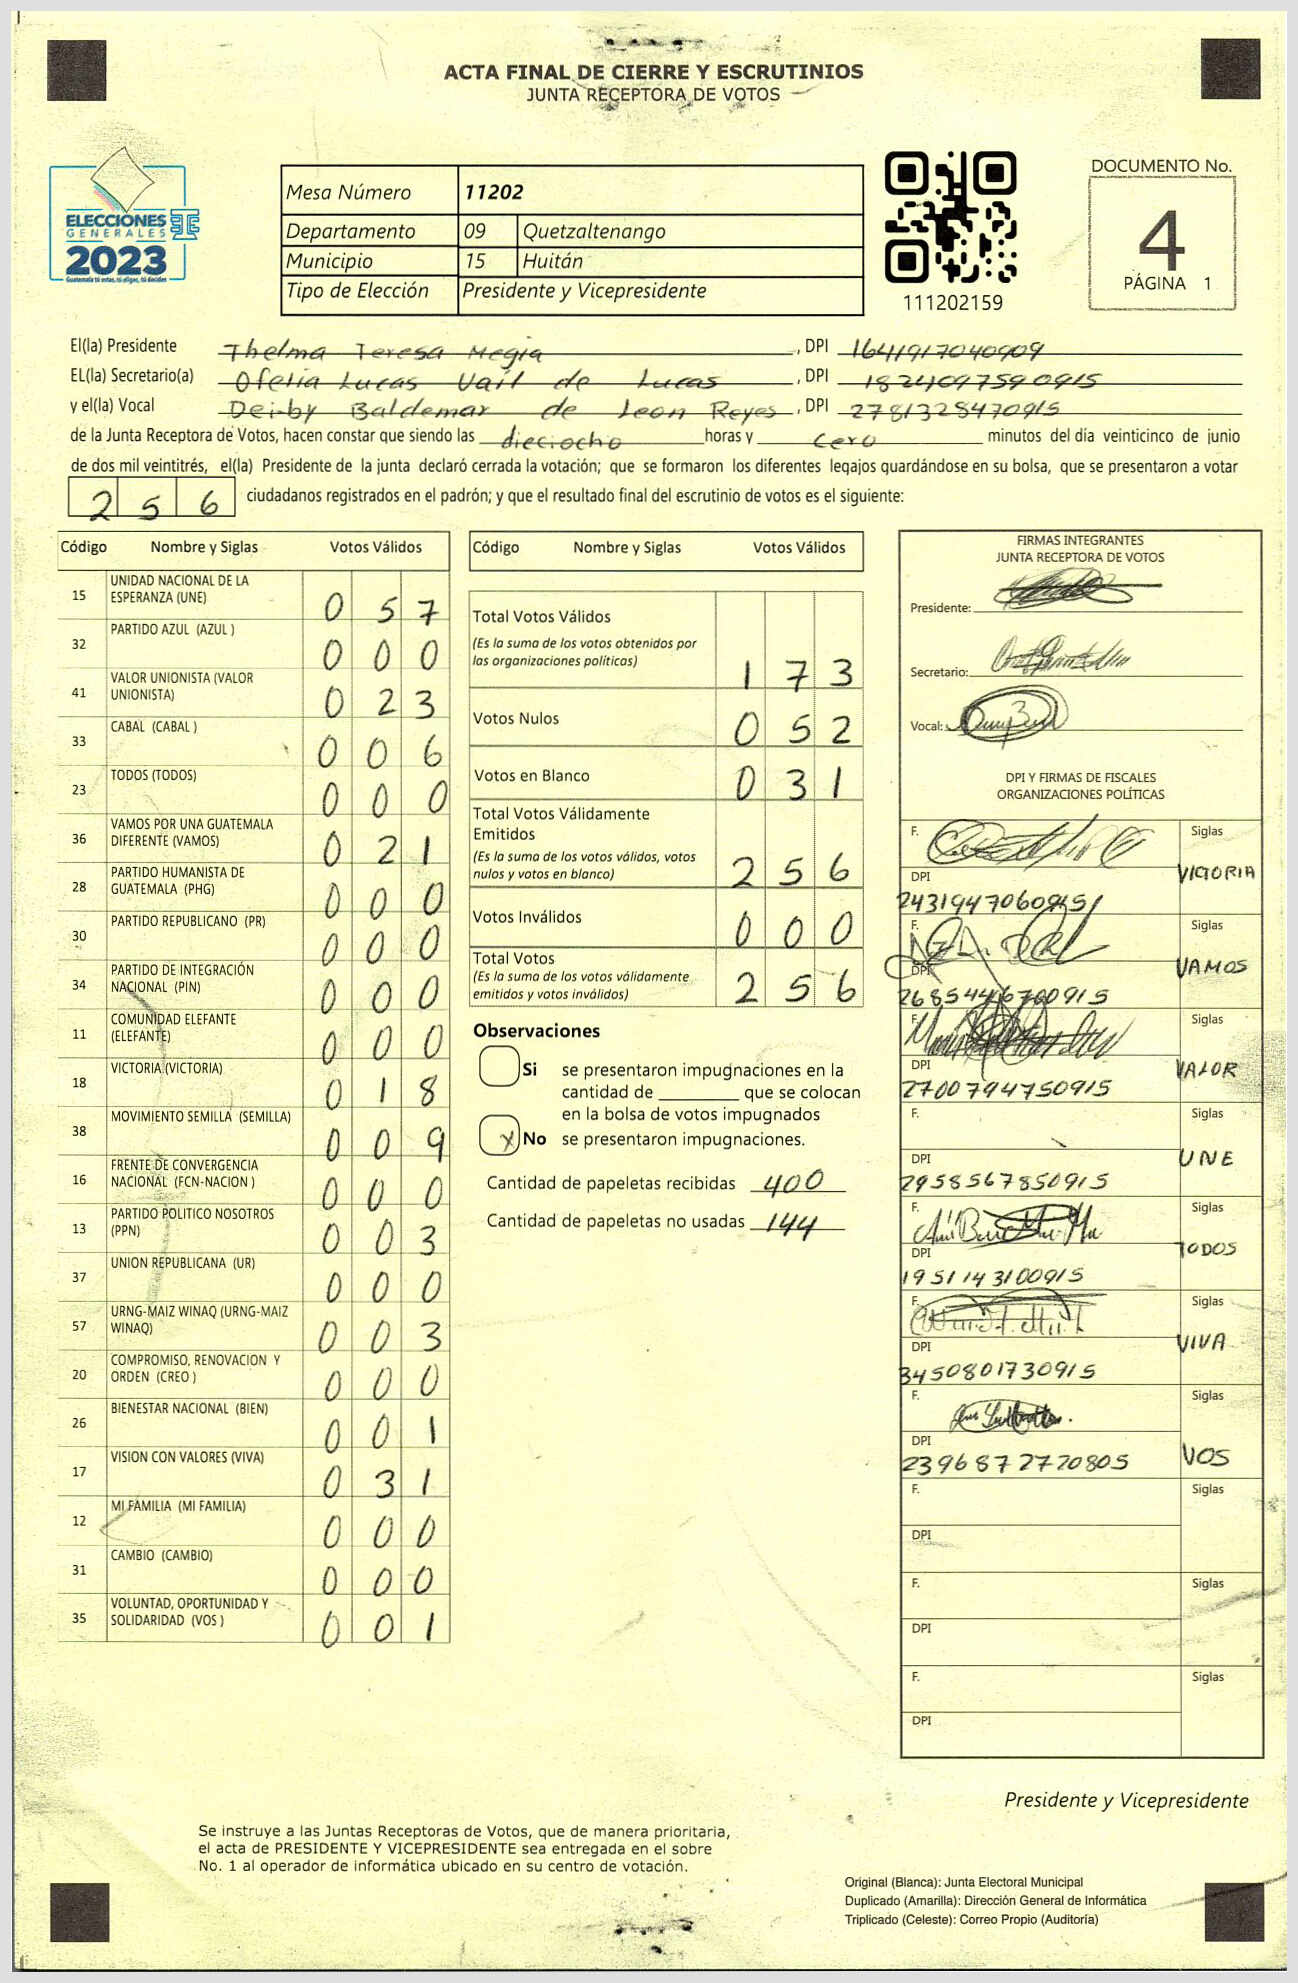 ACTA FINAL DE CIERRE Y ESCRUTINIOS
JUNTA RECEPTORA DE VOTOS
ELECCIONES
GENERALES
2023
Guatemala tú votas, tú eliges, tú decides
Mesa Número 11202
Departamento 09 Quetzaltenango
Municipio 15 Huitán
Tipo de Elección Presidente y Vicepresidente
111202159
DOCUMENTO No.
4
PÁGINA 1
El(la) Presidente Thelma Teresa Megia, DPI 1641917040909
EL(la) Secretario(a) Ofelia Lucas Vail de Lucas, DPI 1824097590915
y el(la) Vocal Deirby Baldemar de Leon Reyes, DPI 2781328470915
de la Junta Receptora de Votos, hacen constar que siendo las dieciocho horas y cero minutos del día veinticinco de junio
de dos mil veintitrés, el(la) Presidente de la junta declaró cerrada la votación; que se formaron los diferentes legajos guardándose en su bolsa, que se presentaron a votar
256 ciudadanos registrados en el padrón; y que el resultado final del escrutinio de votos es el siguiente:
Código Nombre y Siglas Votos Válidos
15 UNIDAD NACIONAL DE LA ESPERANZA (UNE) 0 5 7
32 PARTIDO AZUL (AZUL ) 0 0 0
41 VALOR UNIONISTA (VALOR UNIONISTA) 0 2 3
33 CABAL (CABAL ) 0 0 6
23 TODOS (TODOS) 0 0 0
36 VAMOS POR UNA GUATEMALA DIFERENTE (VAMOS) 0 2 1
28 PARTIDO HUMANISTA DE GUATEMALA (PHG) 0 0 0
30 PARTIDO REPUBLICANO (PR) 0 0 0
34 PARTIDO DE INTEGRACIÓN NACIONAL (PIN) 0 0 0
11 COMUNIDAD ELEFANTE (ELEFANTE) 0 0 0
18 VICTORIA (VICTORIA) 0 1 8
38 MOVIMIENTO SEMILLA (SEMILLA) 0 0 9
16 FRENTE DE CONVERGENCIA NACIONAL (FCN-NACION ) 0 0 0
13 PARTIDO POLITICO NOSOTROS (PPN) 0 0 3
37 UNION REPUBLICANA (UR) 0 0 0
57 URNG-MAIZ WINAQ (URNG-MAIZ WINAQ) 0 0 3
20 COMPROMISO, RENOVACION Y ORDEN (CREO ) 0 0 0
26 BIENESTAR NACIONAL (BIEN) 0 0 1
17 VISION CON VALORES (VIVA) 0 3 1
12 MI FAMILIA (MI FAMILIA) 0 0 0
31 CAMBIO (CAMBIO) 0 0 0
35 VOLUNTAD, OPORTUNIDAD Y SOLIDARIDAD (VOS ) 0 0 1
Código Nombre y Siglas Votos Válidos
Total Votos Válidos
(Es la suma de los votos obtenidos por
las organizaciones políticas) 1 7 3
Votos Nulos 0 5 2
Votos en Blanco 0 3 1
Total Votos Válidamente
Emitidos
(Es la suma de los votos válidos, votos
nulos y votos en blanco) 2 5 6
Votos Inválidos 0 0 0
Total Votos
(Es la suma de los votos válidamente
emitidos y votos inválidos) 2 5 6
Observaciones
Si se presentaron impugnaciones en la
cantidad de ________ que se colocan
en la bolsa de votos impugnados
x No se presentaron impugnaciones.
Cantidad de papeletas recibidas 400
Cantidad de papeletas no usadas 144
FIRMAS INTEGRANTES
JUNTA RECEPTORA DE VOTOS
Presidente:
Secretario:
Vocal:
DPI Y FIRMAS DE FISCALES
ORGANIZACIONES POLÍTICAS
F. Siglas
DPI VICTORIA
2431947060915
F. Siglas
DPI VAMOS
2685446700915
F. Siglas
DPI VALOR
2700794750915
F. Siglas
DPI UNE
2958567850915
F. Siglas
DPI TODOS
1951143100915
F. Siglas
DPI VIVA
3450801730915
F. Siglas
DPI VOS
2396872720805
F. Siglas
DPI
F. Siglas
DPI
F. Siglas
DPI
Presidente y Vicepresidente
Se instruye a las Juntas Receptoras de Votos, que de manera prioritaria,
el acta de PRESIDENTE Y VICEPRESIDENTE sea entregada en el sobre
No. 1 al operador de informática ubicado en su centro de votación.
Original (Blanca): Junta Electoral Municipal
Duplicado (Amarilla): Dirección General de Informática
Triplicado (Celeste): Correo Propio (Auditoría)